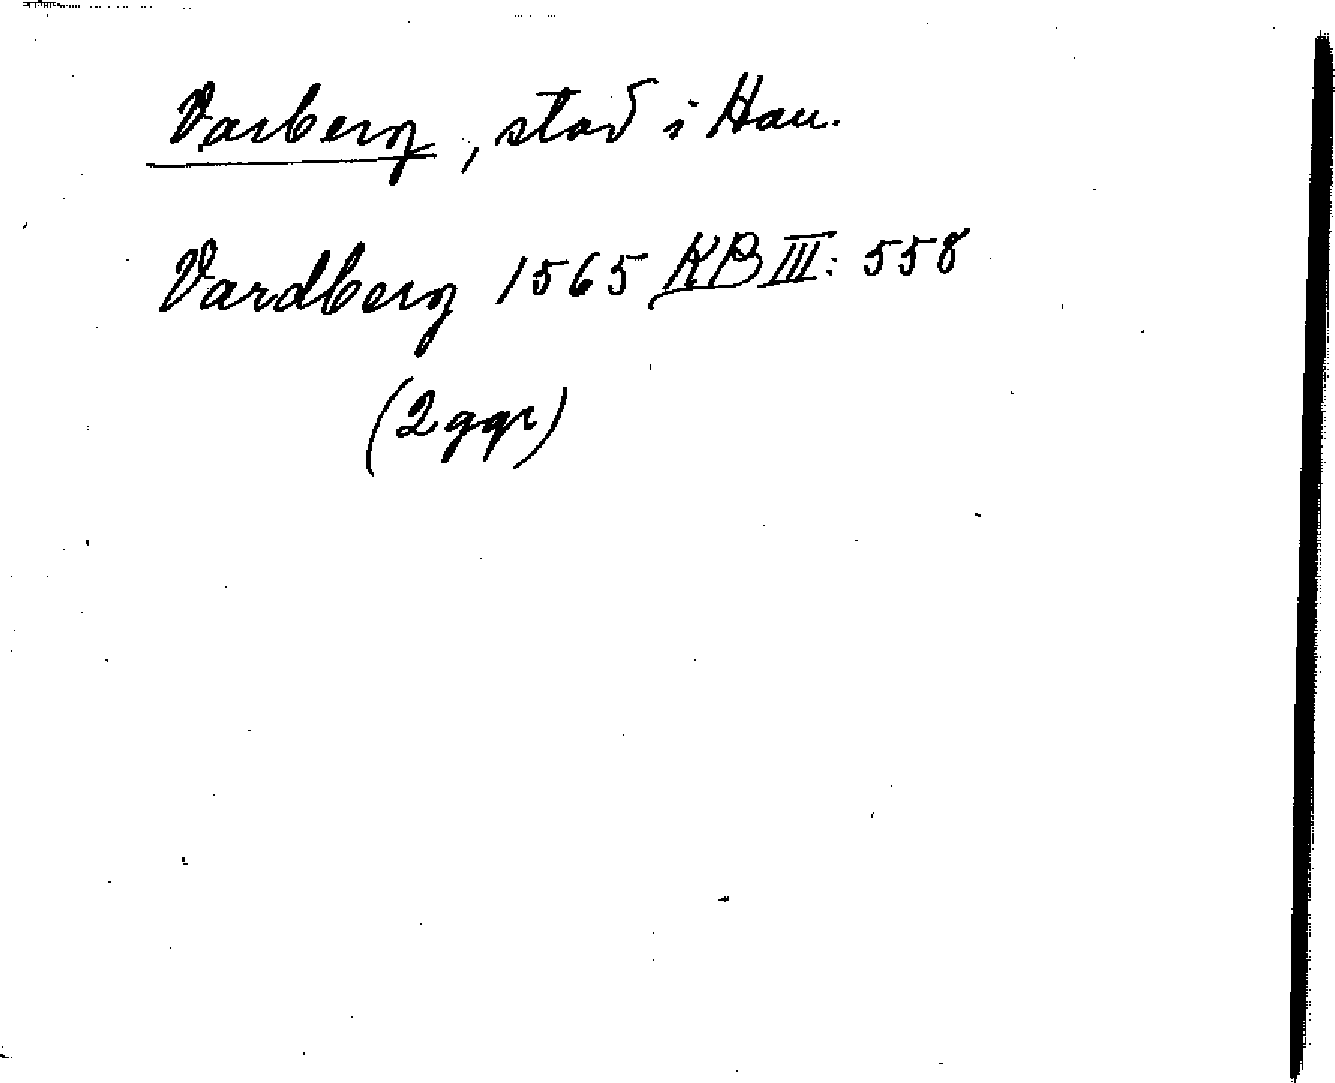 Varberg, stad i Hall.
Vardberg 1565 KB III: 558
(2 ggr)